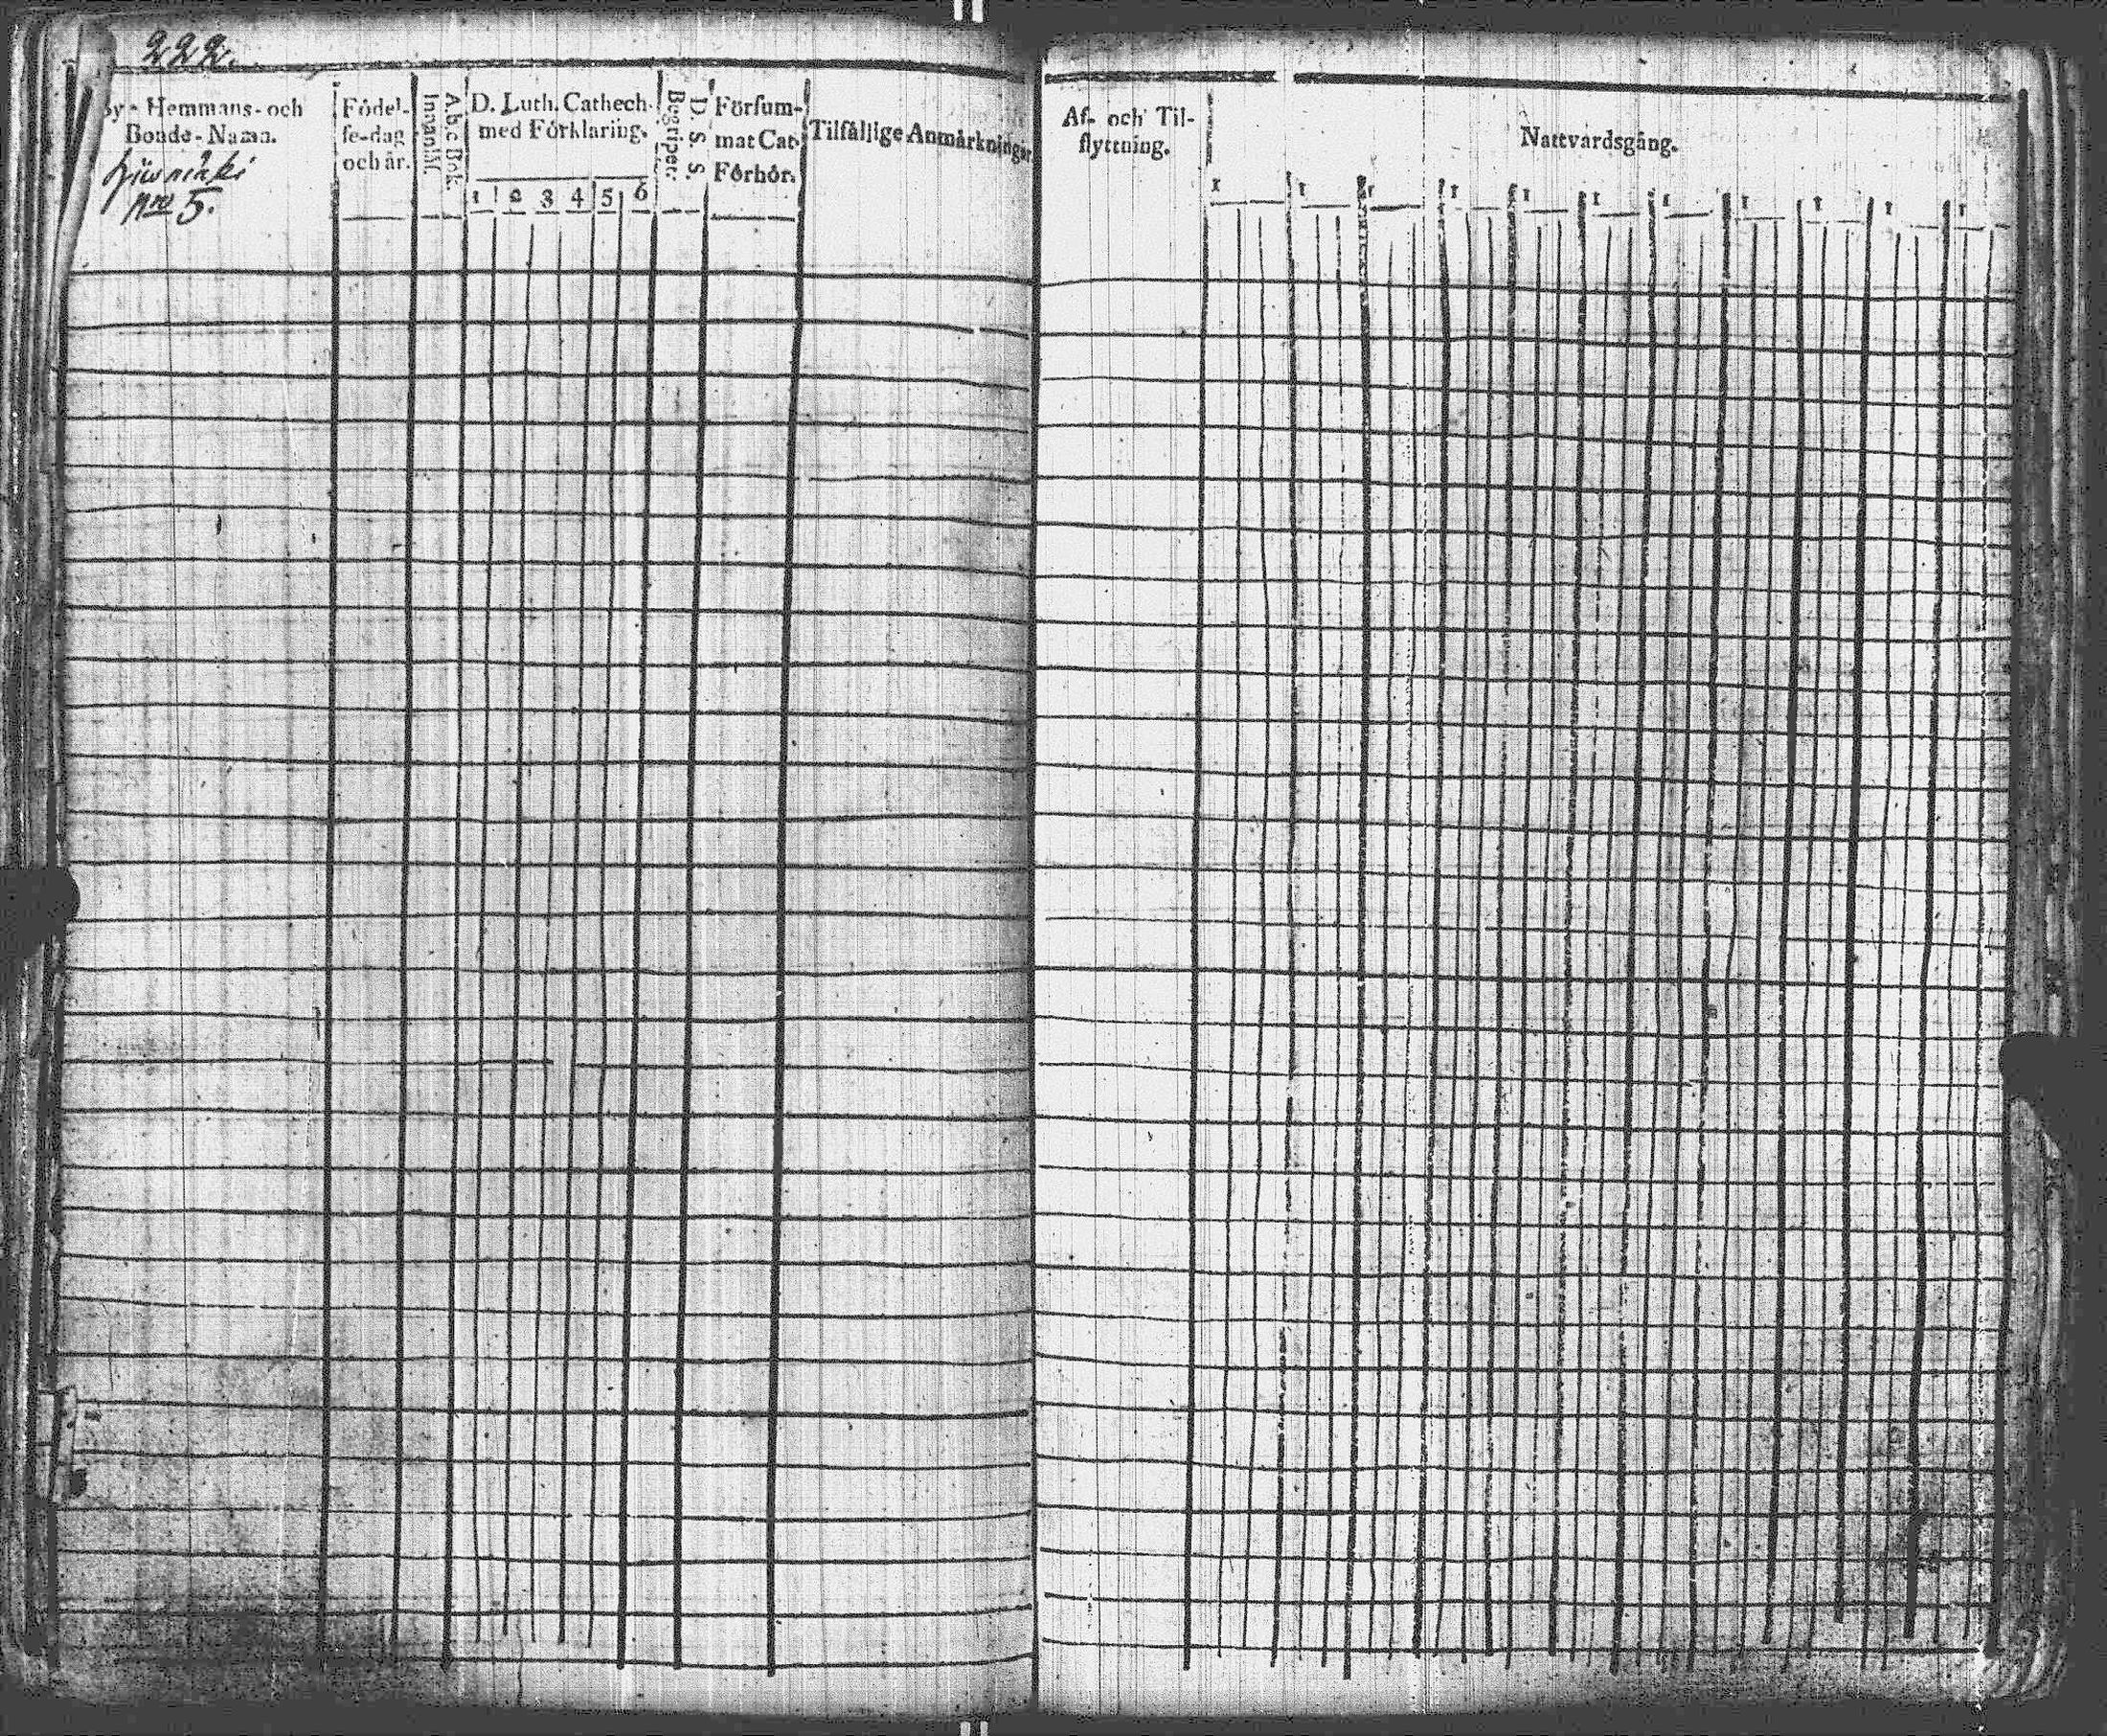 222.
By- Hemmans- och
Bonde-Namn.
nro 5.
Födel-
se-dag
och år.
Innantill.
Abc Bok.
D. Luth. Cathech.
med Förklaring.
1 2 3 4 5 6
Begriper.
D. S. S.
Försum-
mat Cat.
Förhör.
Tilfällige Anmärkningar.
Af- och Til-
flyttning.
Nattvardsgång.
1 1 1 1 1 1 1 1 1 1 1